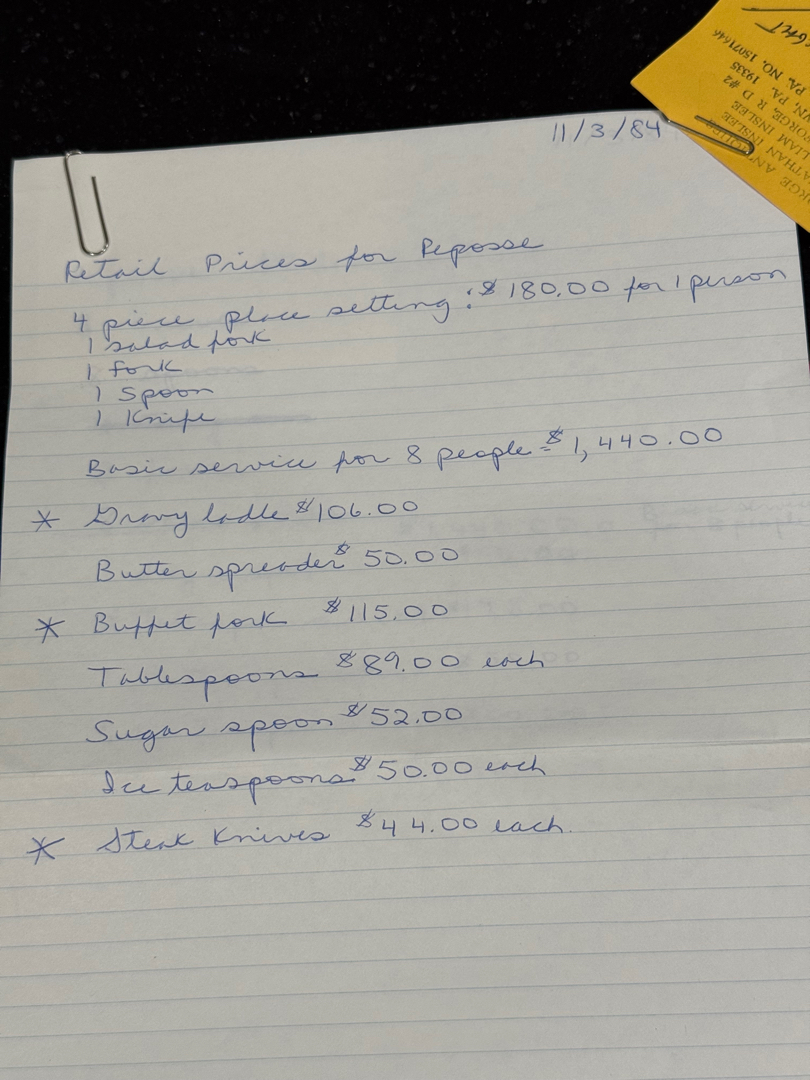 11/3/84
Retail Prices for Reposse
4 piece place setting: $180.00 for 1 person
1 salad fork
1 fork
1 Spoon
1 Knife
Basic service for 8 people = $1,440.00
* Gravy ladle $106.00
Butter spreader $50.00
* Buffet fork $115.00
Tablespoons $89.00 each
Sugar spoon $52.00
Ice teaspoons $50.00 each
* Steak Knives $44.00 each.
RGE
ATHAN INSLEE
LIAM INSLEE
RGE, R D #2
WN, PA. 19335
PA. NO. 15071646